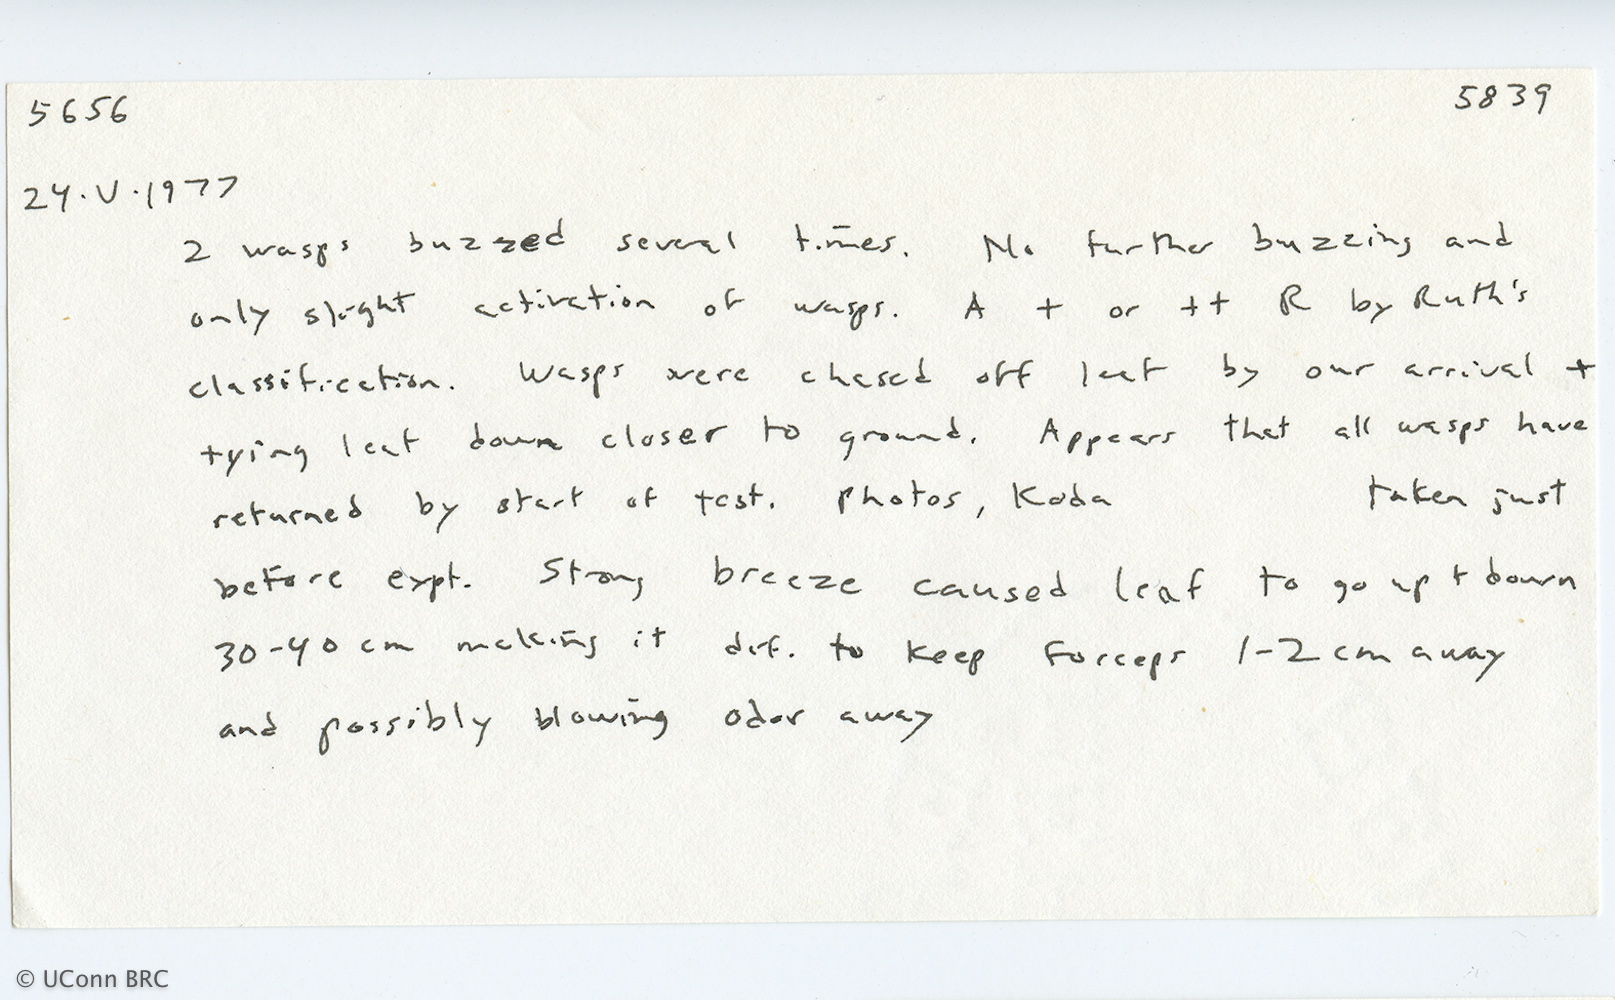 5656 5839
24.V.1977
2 wasps buzzed several times. No further buzzing and
only slight activation of wasps. A + or ++ R by Ruth's
classification. Wasps were chased off leaf by our arrival +
tying leaf down closer to ground. Appears that all wasps have
returned by start of test. Photos, Koda taken just
before expt. Strong breeze caused leaf to go up + down
30-40 cm making it dif. to keep forceps 1-2 cm away
and possibly blowing odor away
© UConn BRC